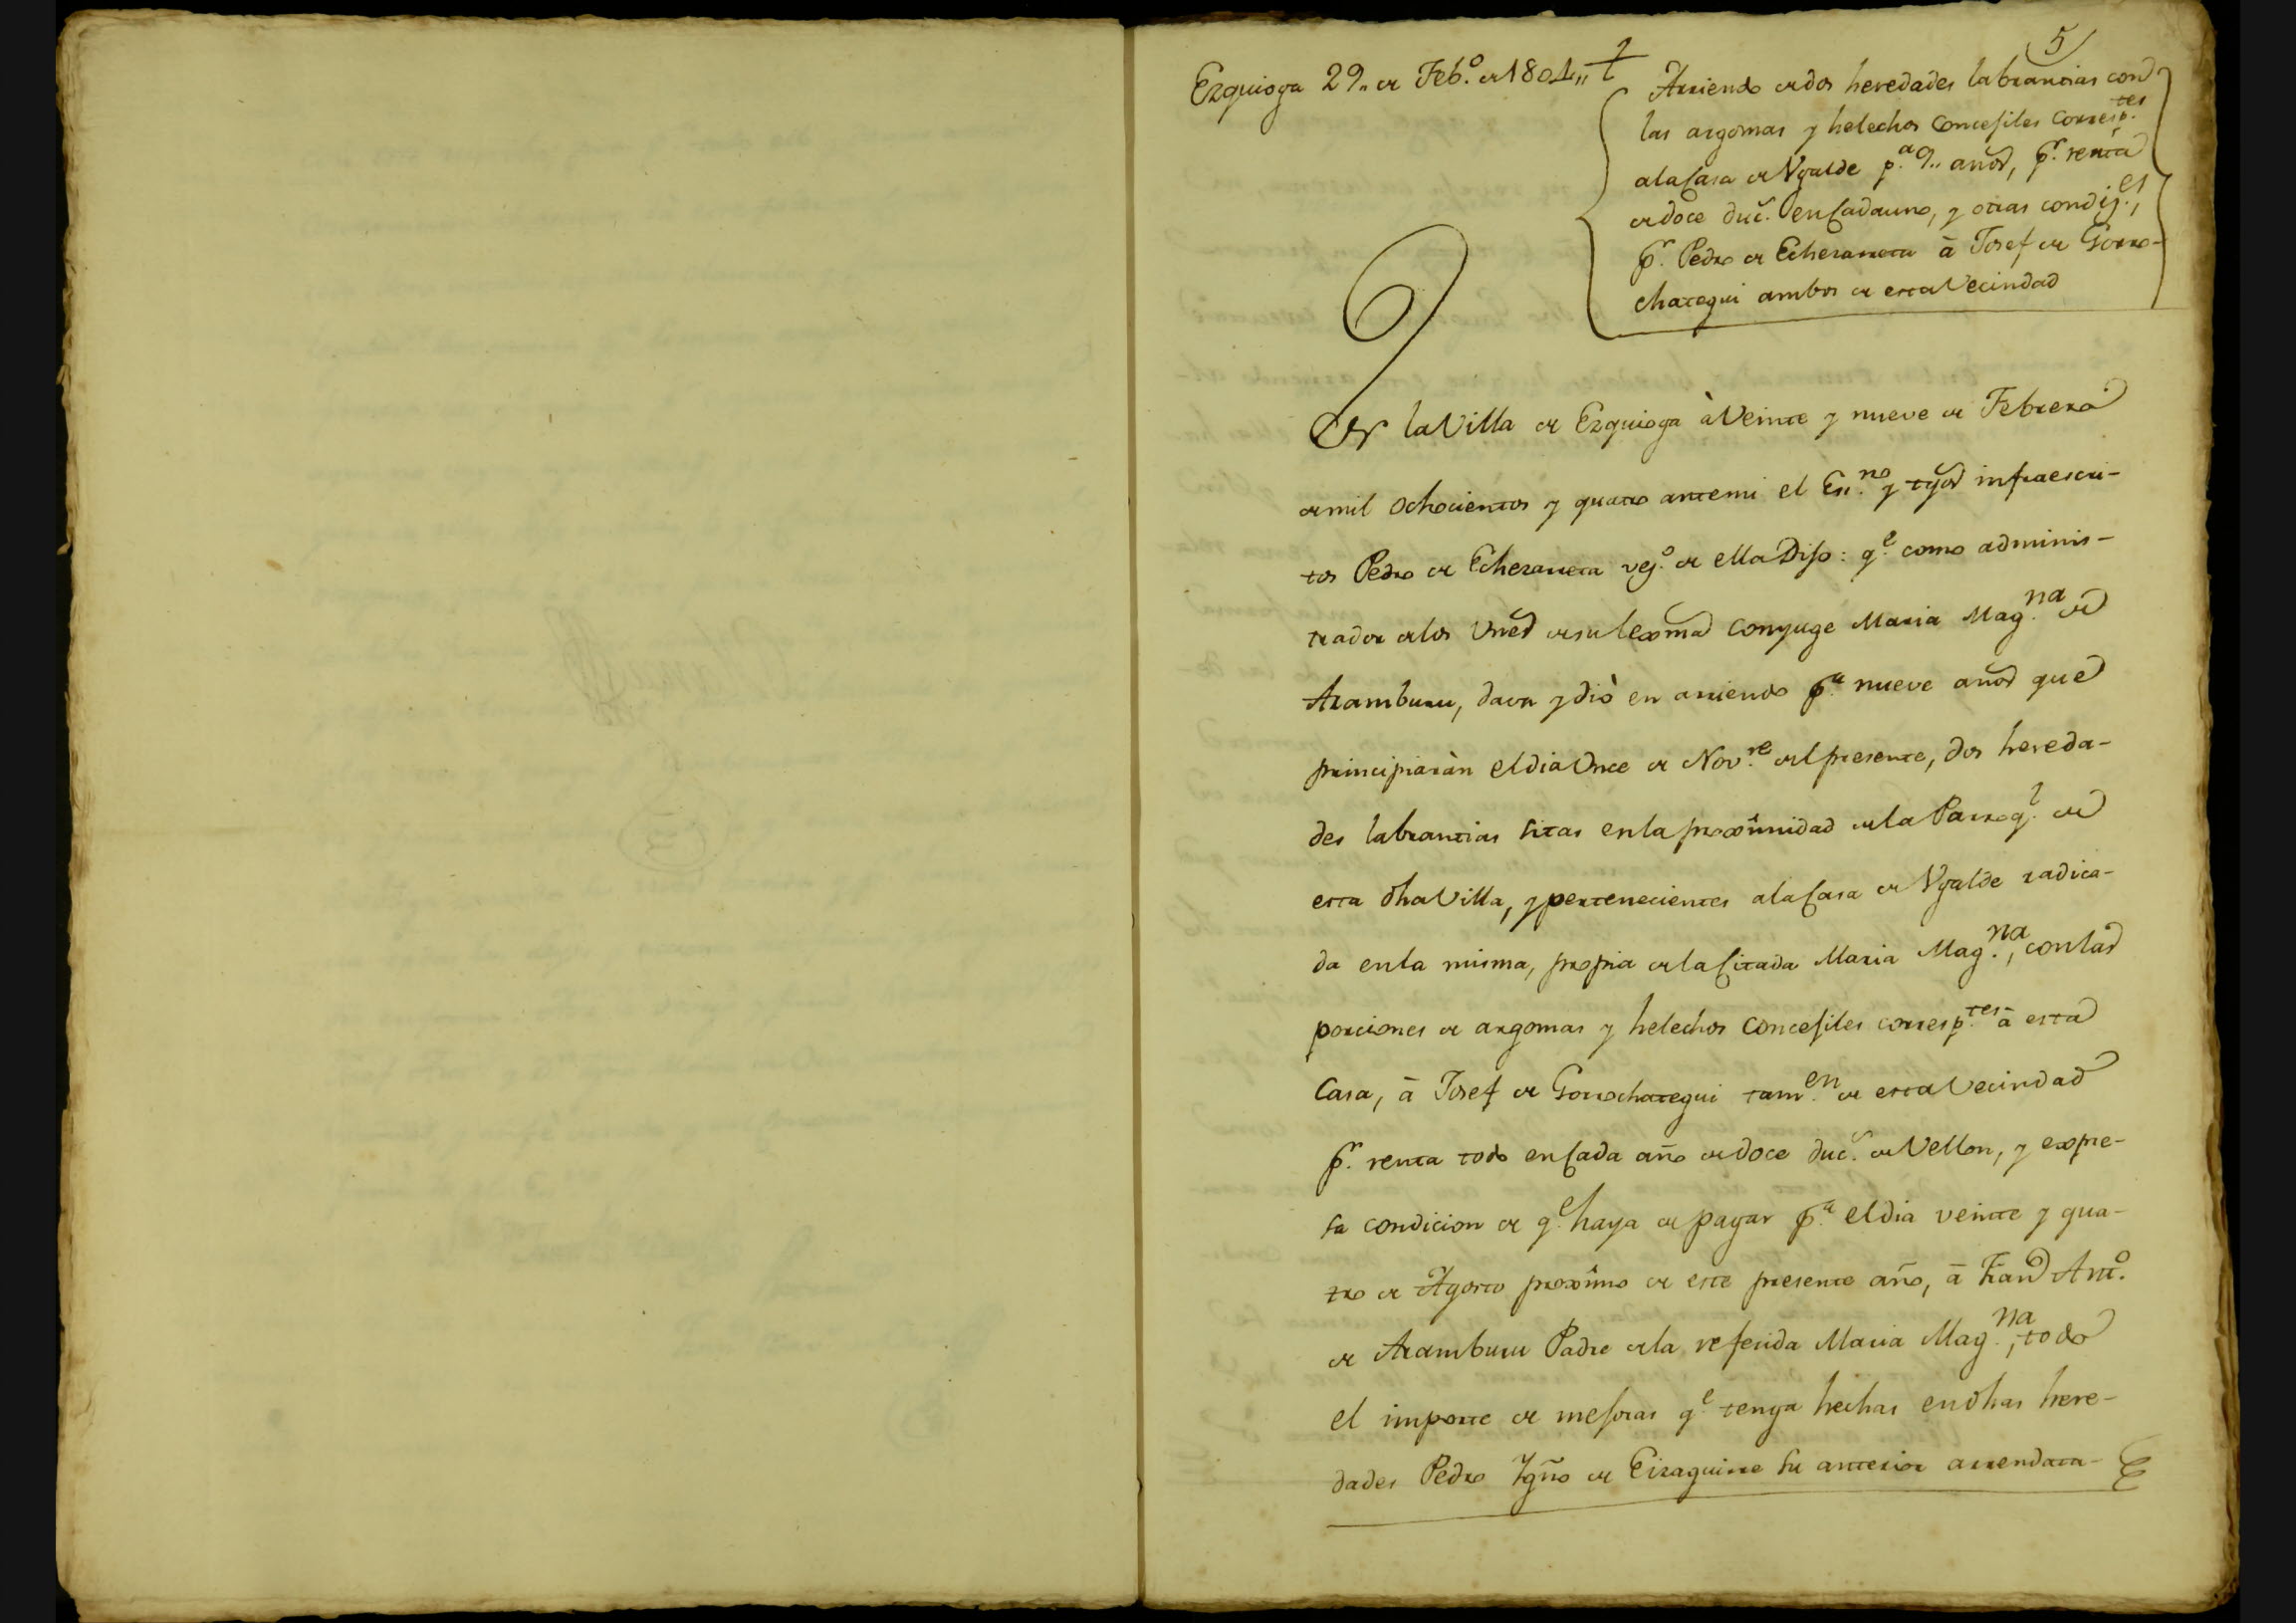 5
Ezquioga 29,, de Feb.º de 1804,,
Arriendo de dos heredades labrantias con
las argomas y helechos concejiles corresp.tes
a la Casa de Ugalde p.ª 9,, años, p.r renta
de doce duc.s en Cada uno, y otras condiz.es,
p.r Pedro de Echezarreta â Josef de Gorro-
chategui ambos de esta Vecindad
En la Villa de Ezquioga à Veinte y nueve de Febrero
de mil ochocientos y quatro ante mi el Ess.no y tgos infraescri-
tos Pedro de Echezarreta vez.º de ella Dijo: q.e como adminis-
trador de los vnes de su lexma conyuge Maria Mag.na de
Aramburu, dava y diò en arriendo p.ª nueve años que
principiaràn el dia Once de Nov.re del presente, dos hereda-
des labrantias sitas en la proximidad de la Parroq.l de
esta dha Villa, y pertenecientes a la Casa de Ugalde radica-
da en la misma, propia de la Citada Maria Mag.na, con las
porciones de argomas y helechos concejiles corresp.tes â esta
Casa, â Josef de Gorrochategui tam.en de esta Vecindad
p.r renta todo en Cada año de doce duc.s de Vellon, y expre-
sa condicion de q.e haya de pagar p.ª el dia veinte y qua-
tro de Agosto proximo de este presente año, â Fran Ant.º
de Aramburu Padre de la referida Maria Mag.na, todo
el importe de mejoras q.e tenga hechas en dhas here-
dades Pedro Ygñº de Eizaguirre su anterior arrendata-